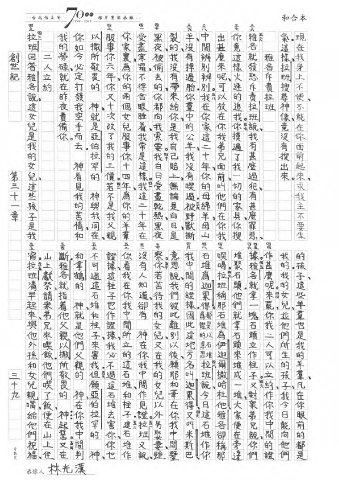 和合本
70
現在我身上不便不能在你面前起來求我主不要生
氣這樣拉班搜尋神像竟沒有搜出來
雅各就發怒斥責拉班說我有甚麼過犯有甚麼罪惡
你竟這樣火速的追我你摸遍了我一切的家具你搜
出甚麼來呢可以放在你我弟兄面前叫他們在你我
中間辨別辨別我在你家這二十年你的母綿羊母山
羊沒有掉過胎你群中的公羊我沒有喫過被野獸撕
裂的我沒有帶來給你是我自己賠上無論是白日是
黑夜被偷去的你都向我索要我白日受盡乾熱黑夜
受盡寒霜不得合眼睡著我常是這樣我這二十年在
你家裡為你的兩個女兒服事你十四年為你的羊群
服事你六年你又十次改了我的工價若不是我父親
以撒所敬畏的神就是亞伯拉罕的神與我同在
你如今必定打發我空手而去神看見我的苦情和
我的勞碌就在昨夜責備你
二人立約
拉班回答雅各說這女兒是我的女兒這些孩子是我
的孩子這些羊群也是我的羊群凡在你眼前的都是
我的我的女兒並他們所生的孩子我今日能向他們
作甚麼呢來罷你我二人可以立約作你我中間的證
據雅各就拿一塊石頭立作柱子又對眾弟兄說你們
堆聚石頭他們就拿石頭來堆成一堆大家便在旁邊
喫喝拉班稱那石堆為伊迦爾撒哈杜他雅各卻稱那
石堆為迦累得拉班說今日這石堆作你
我中間的證據因此這地方名叫迦累得又叫米斯巴
意思說我們彼此離別以後願耶和華在你我中間鑒
察你若苦待我的女兒又在我的女兒以外另娶妻雖
沒有人知道卻有神在你我中間作見證拉班又說
你看我在你我中間所立的這石堆和柱子這石堆作
證據這柱子也作證據我必不過這石堆去害你你也
不可過這石堆和柱子來害我但願亞伯拉罕的神
和拿鶴的神就是他們父親的神在你我中間判
斷雅各就指著他父親以撒所敬畏的神起誓又在
山上獻祭請眾弟兄來喫飯他們喫了飯便在山上住
宿拉班清早起來與他外孫和女兒親嘴給他們祝福
創世記
第三十一章
三十九
林光漢